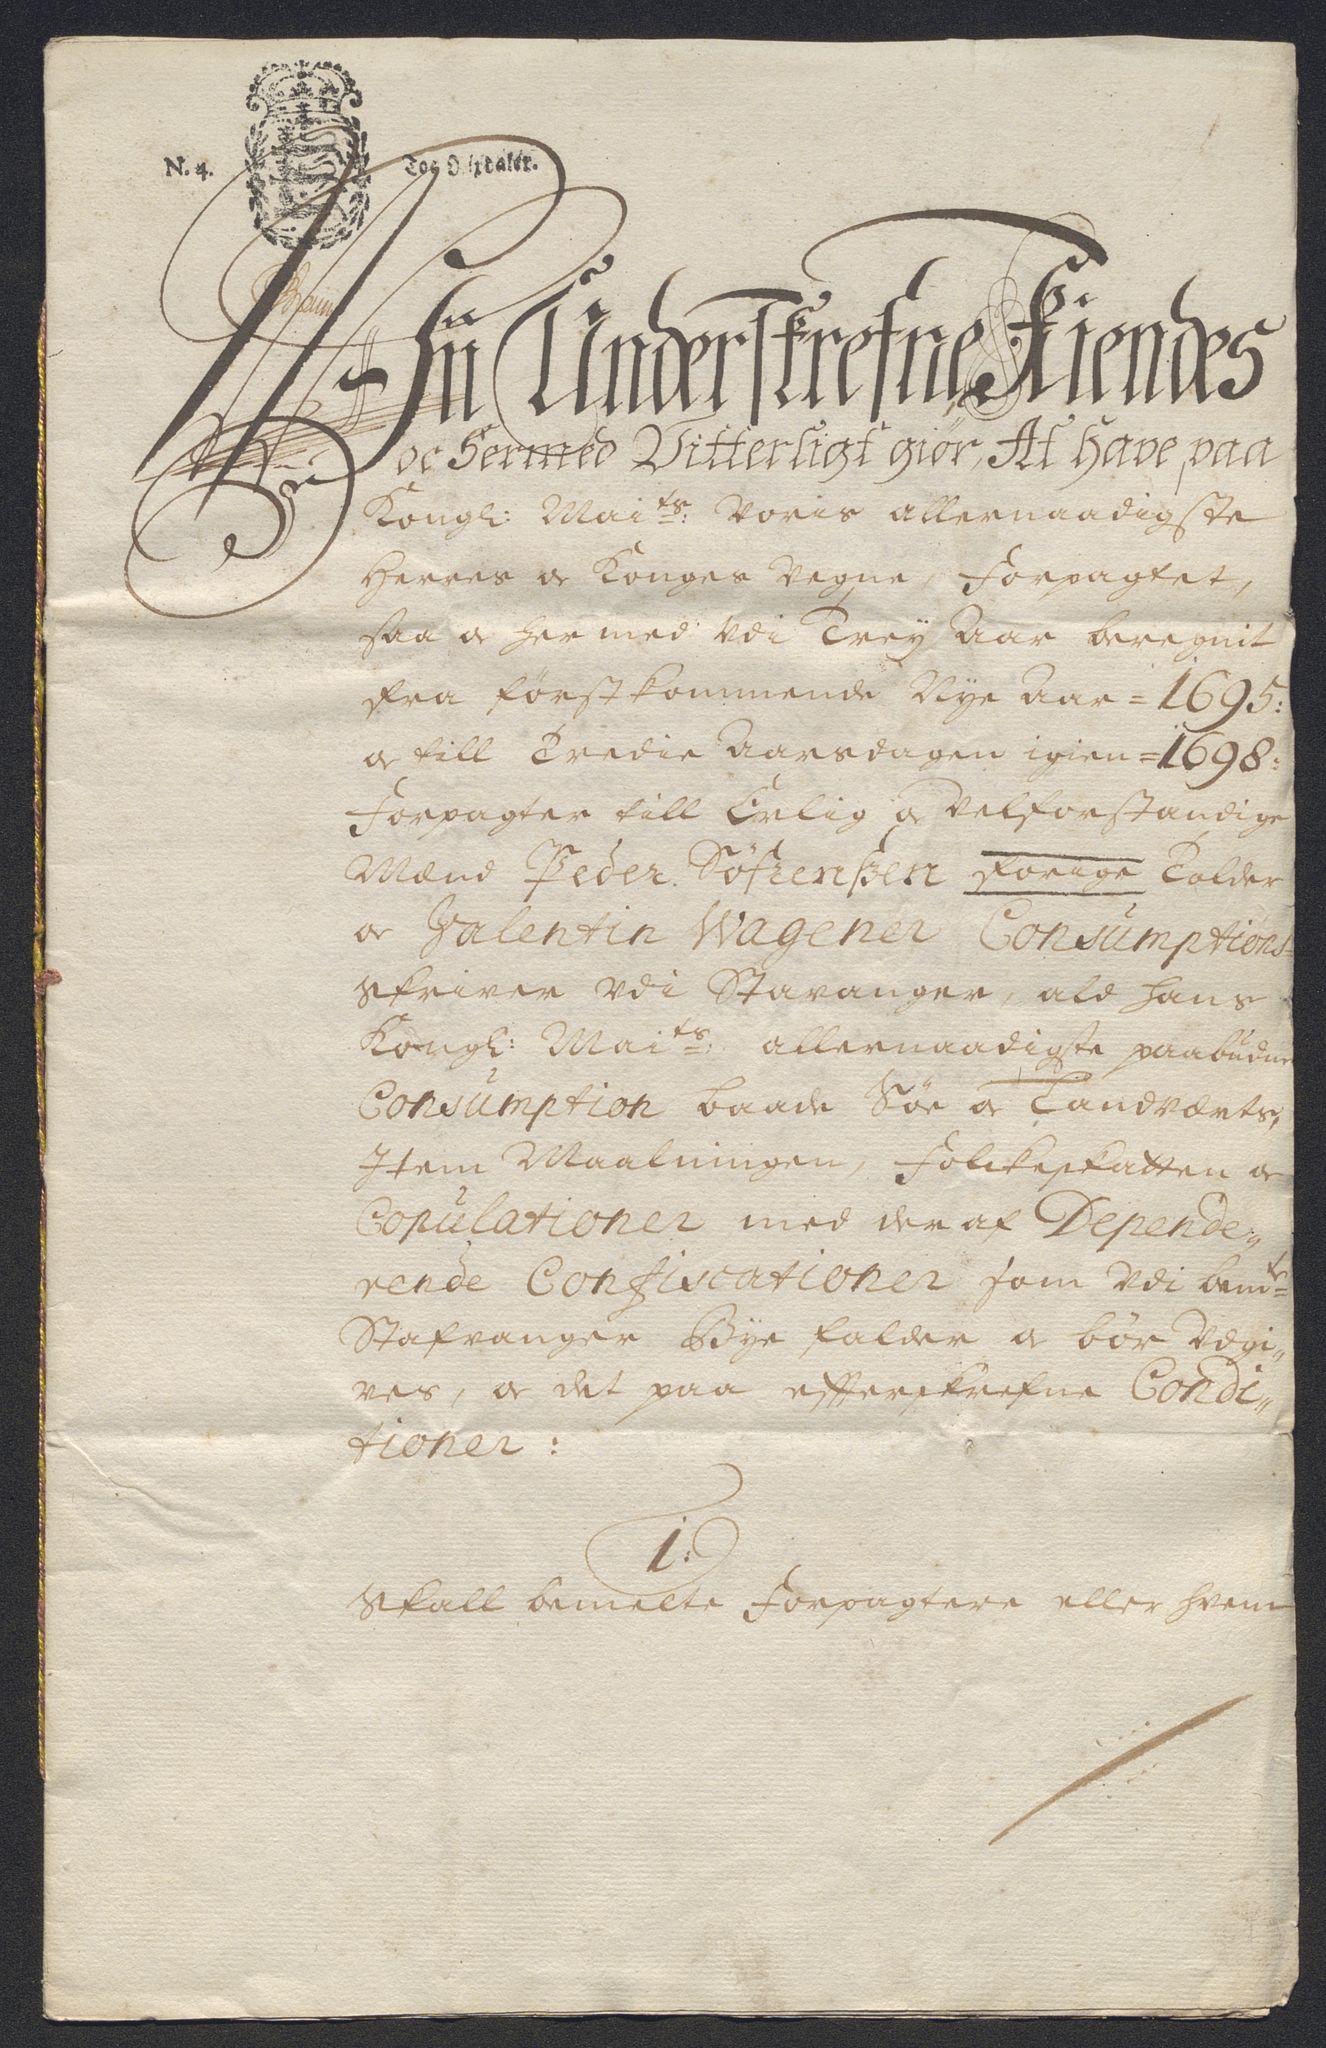 N. 4. Toe Rixdaler.
Wii Underskrefne Kiendes
oc Hermed Vitterligt giør, At have paa
Kongl: Maits: voris allernaadigste
Herres oc Konges vegne, Forpagtet,
saa oc hermed udi Trey Aar beregnit
fra førstkommende Nye Aar = 1695:
oc till Tredie Aarsdagen igien = 1698:
Forpagter till Erlig oc velforstandige
Mænd Peder Søfrenßen forige Tolder
oc Valentin Wagener Consumptions-
skriver udi Stavanger, ald hans
Kongl: Maits: allernaadigste paabudne
Consumption baade Søe oc Landværts,
Item Maalningen, Folckeskatten oc
Copulationer med deraf Depende„
rende Confiscationer som udi bemte
Stafvanger Bye falder oc bør udgi„
ves, oc det paa efferskrefne Condi„
tioner:
1:
Skall bemelte Forpagtere eller hvem